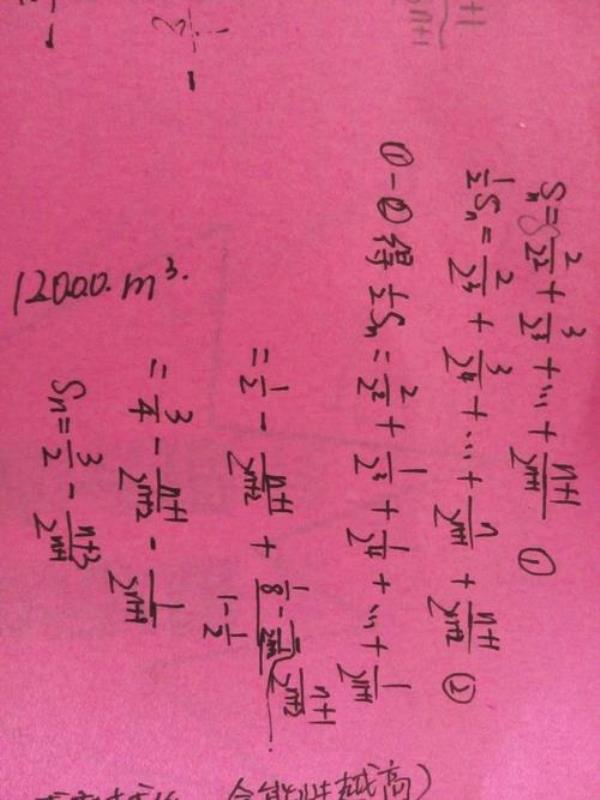 Sn = 2/2² + 3/2³ + ... + n+1/2ⁿ⁺¹ ①
1/2 Sn = 2/2³ + 3/2⁴ + ... + n/2ⁿ⁺¹ + n+1/2ⁿ⁺² ②
①-②得 1/2 Sn = 2/2² + 1/2³ + 1/2⁴ + ... + 1/2ⁿ⁺¹ - n+1/2ⁿ⁺²
= 1/2 - n+1/2ⁿ⁺² +
1-1/2
= 3/4 - n+1/2ⁿ⁺² - 1/2ⁿ⁺¹
Sn = 3/2 - n+3/2ⁿ⁺¹
12000.m³.
越高)